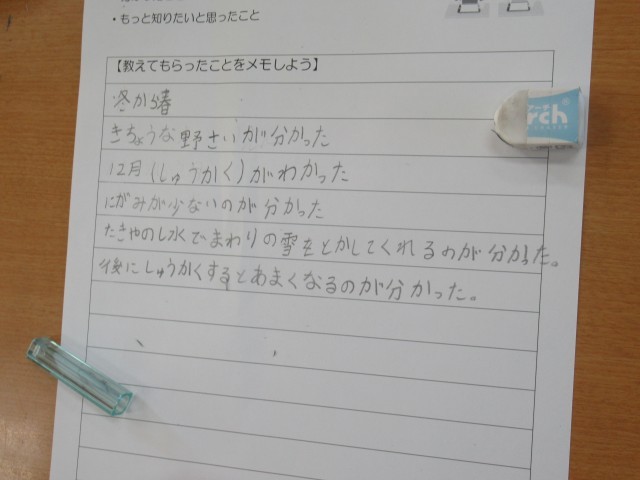 ・もっと知りたいと思ったこと
【教えてもらったことをメモしよう】
冬から春
きちょうな野さいが分かった
12月(しゅうかく)がわかった
にがみが少ないのが分かった
水でまわりの雪をとかしてくれるのが分かった。
後にしゅうかくするとあまくなるのが分かった。
rch